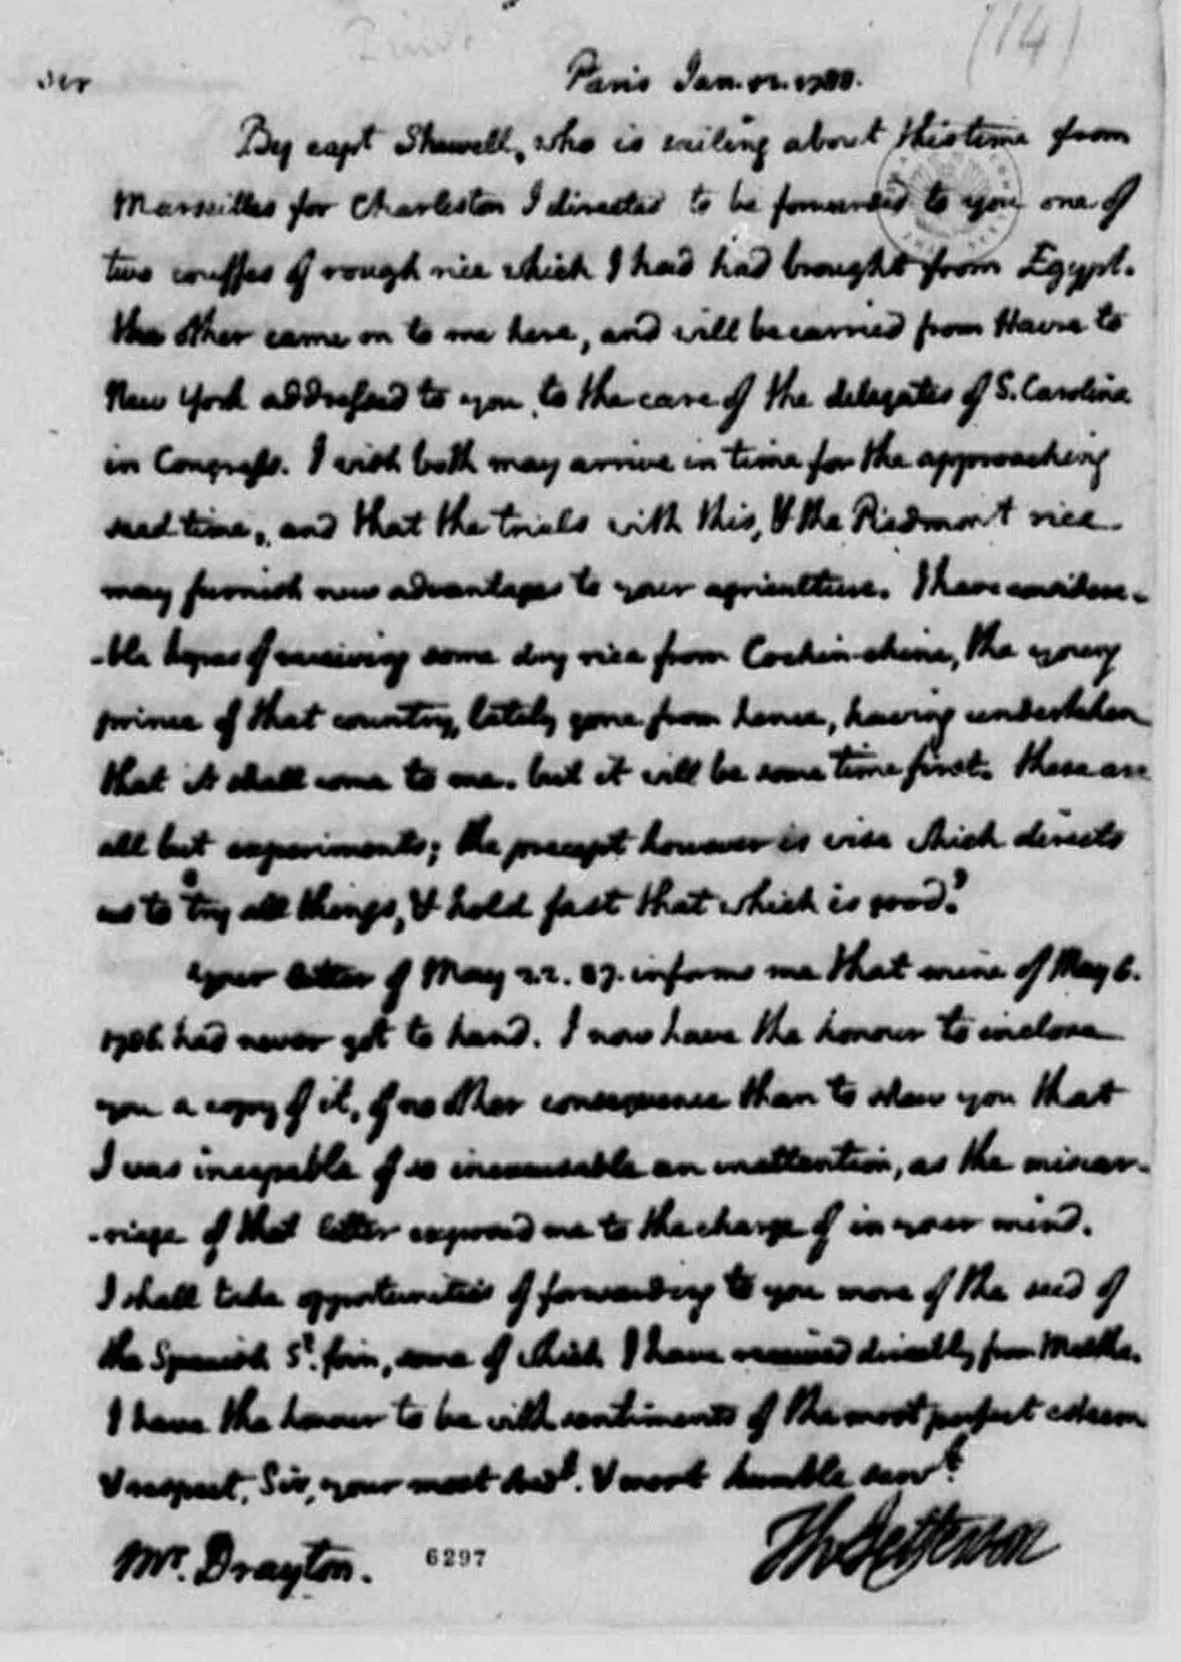 (14)
Sir
Paris Jan. 1788.
By capt Shewell, who is sailing about this time from
Marseilles for Charleston I directed to be forwarded to you one of
two couffes of rough rice which I had had brought from Egypt.
the other came on to me here, and will be carried from Havre to
New York addressed to you, to the care of the delegates of S. Carolina
in Congress. I wish both may arrive in time for the approaching
seed time, and that the trials with this, & the Piedmont rice
may furnish new advantages to your agriculture. I have considera-
-ble hopes of receiving some dry rice from Cochin-china, the young
prince of that country, lately gone from hence, having undertaken
that it shall come to me. but it will be some time first. these are
all but experiments; the precept however is wise which directs
us to 'try all things, & hold fast that which is good.'
Your letter of May 22. 87. informs me that mine of May 6.
1786. had never got to hand. I now have the honour to inclose
you a copy of it, of no other consequence than to shew you that
I was incapable of so inexcusable an inattention, as the miscar-
-riage of that letter exposed me to the charge of in your mind.
I shall take opportunities of forwarding to you more of the seed of
the Spanish St. foin, some of which I have received directly from Maltha.
I have the honour to be with sentiments of the most perfect esteem
& respect, Sir, your most obedt. & most humble servt.
Th Jefferson
Mr. Drayton.
6297